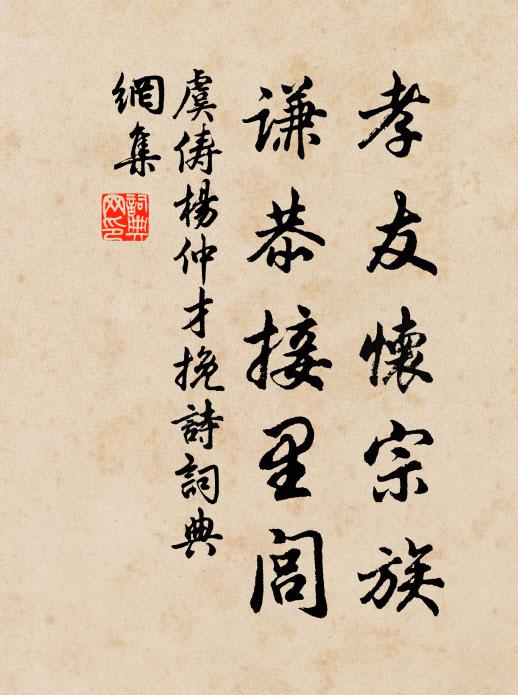 孝友懷宗族
謙恭接里閭
虞儔楊仲才挽詩詞典
網集
詞典
网印